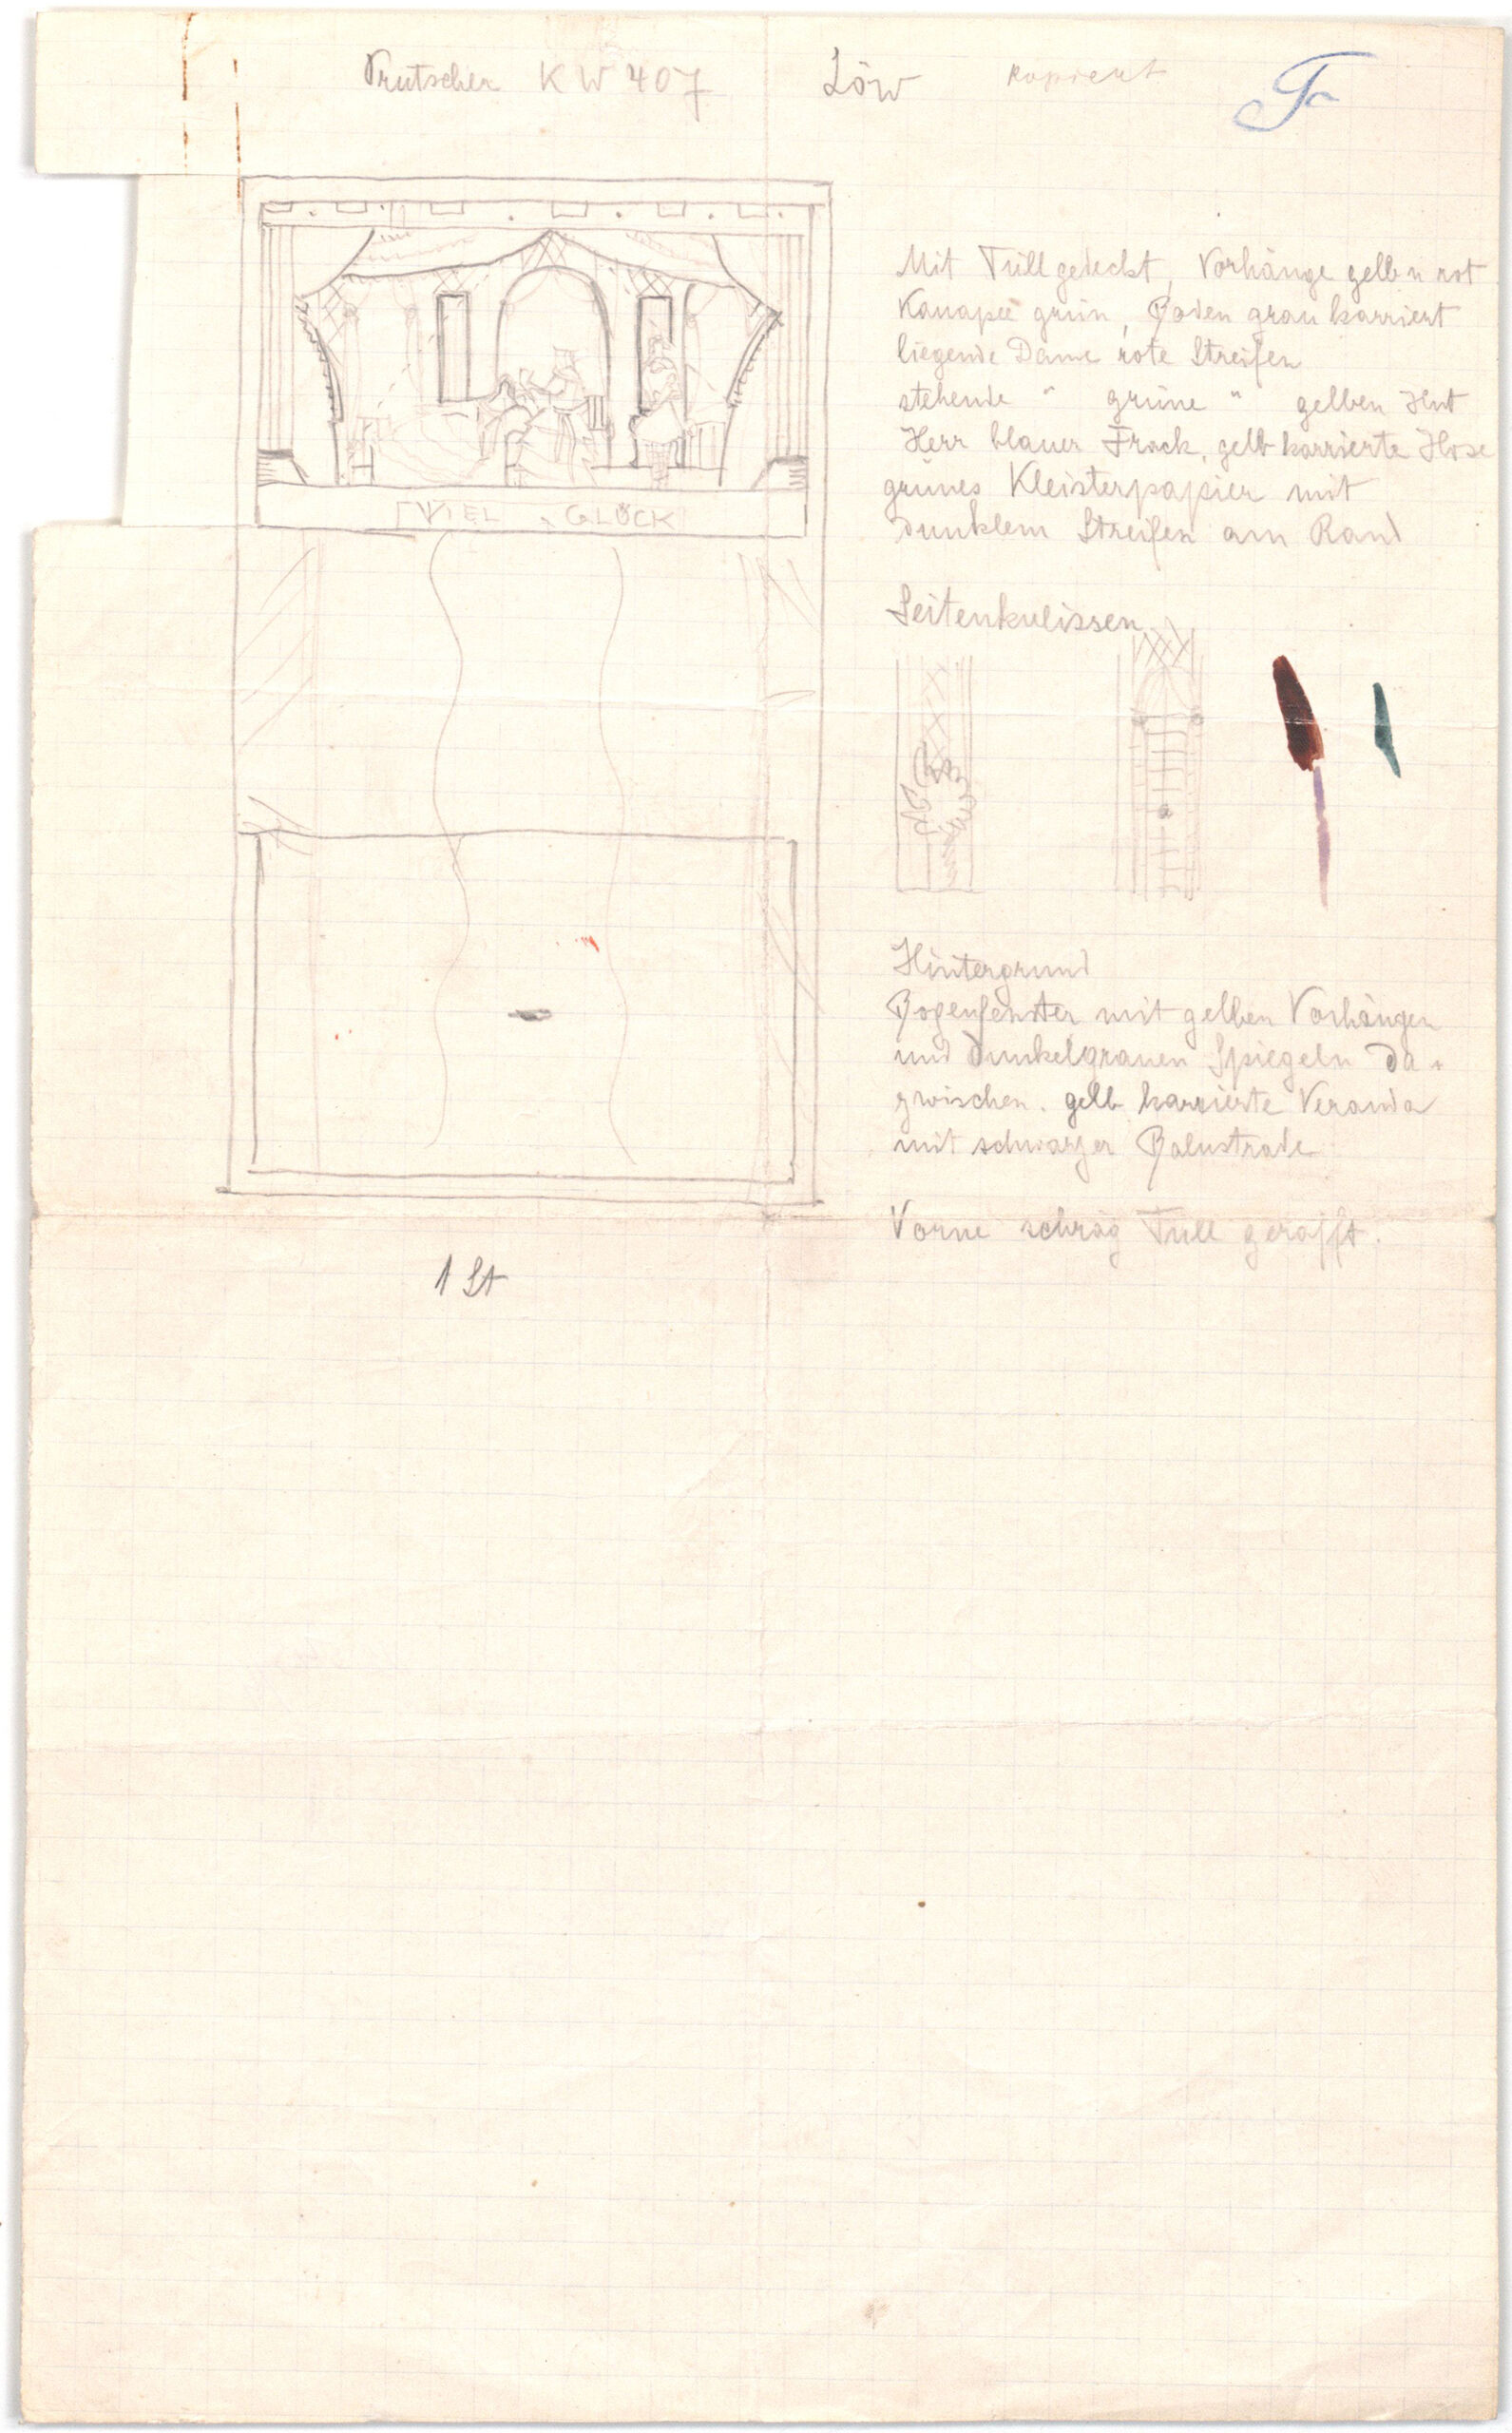 Prutscher KW 407 Löw kopiert
Mit Tüll gedeckt, Vorhänge gelb u rot
Kanapee grün, Boden grau karriert
liegende Dame rote Streifen
stehende " grüne " gelben Hut
Herr blauer Frack, gelb karrierte Hose
grünes Kleisterpapier mit
dunklem Streifen am Rand
VIEL GLÜCK
Seitenkulissen
Hintergrund
Bogenfenster mit gelben Vorhängen
und dunkelgrauen Spiegeln da=
zwischen. gelb karrierte Veranda
mit schwarzer Balustrade
Vorne schräg Tüll gerafft.
1 St